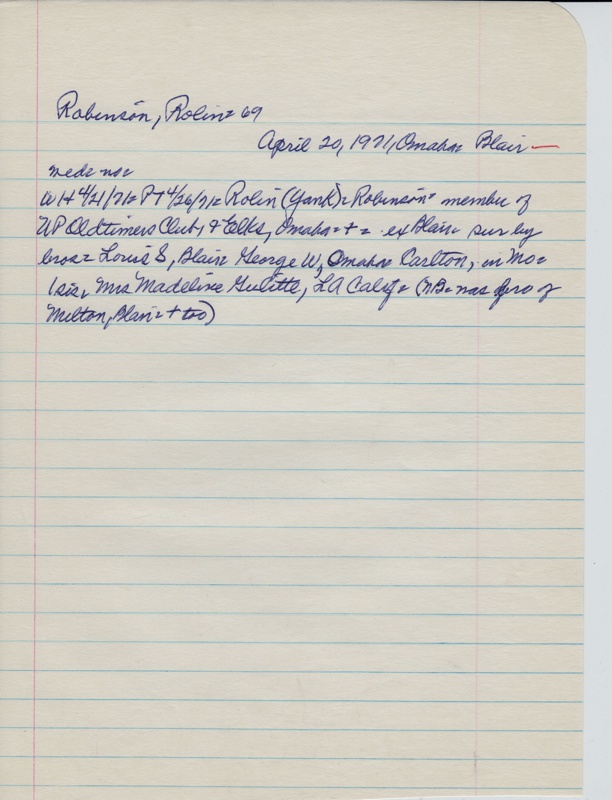 Robinson, Rolin= 69
April 20, 1971, Omaha= Blair —
meds no=
WH 4/21/71= PT 4/26/71= Rolin (Yank)= Robinson= member of
UP Oldtimers Club, & Elks, Omaha= + = ex Blair= sur by
bros= Louis S, Blair= George W, Omaha= Carlton, in Mo=
1 sis, Mrs Madeline Gulitte, LA Calif= (NB= was bro of
Milton, Blair= + too)